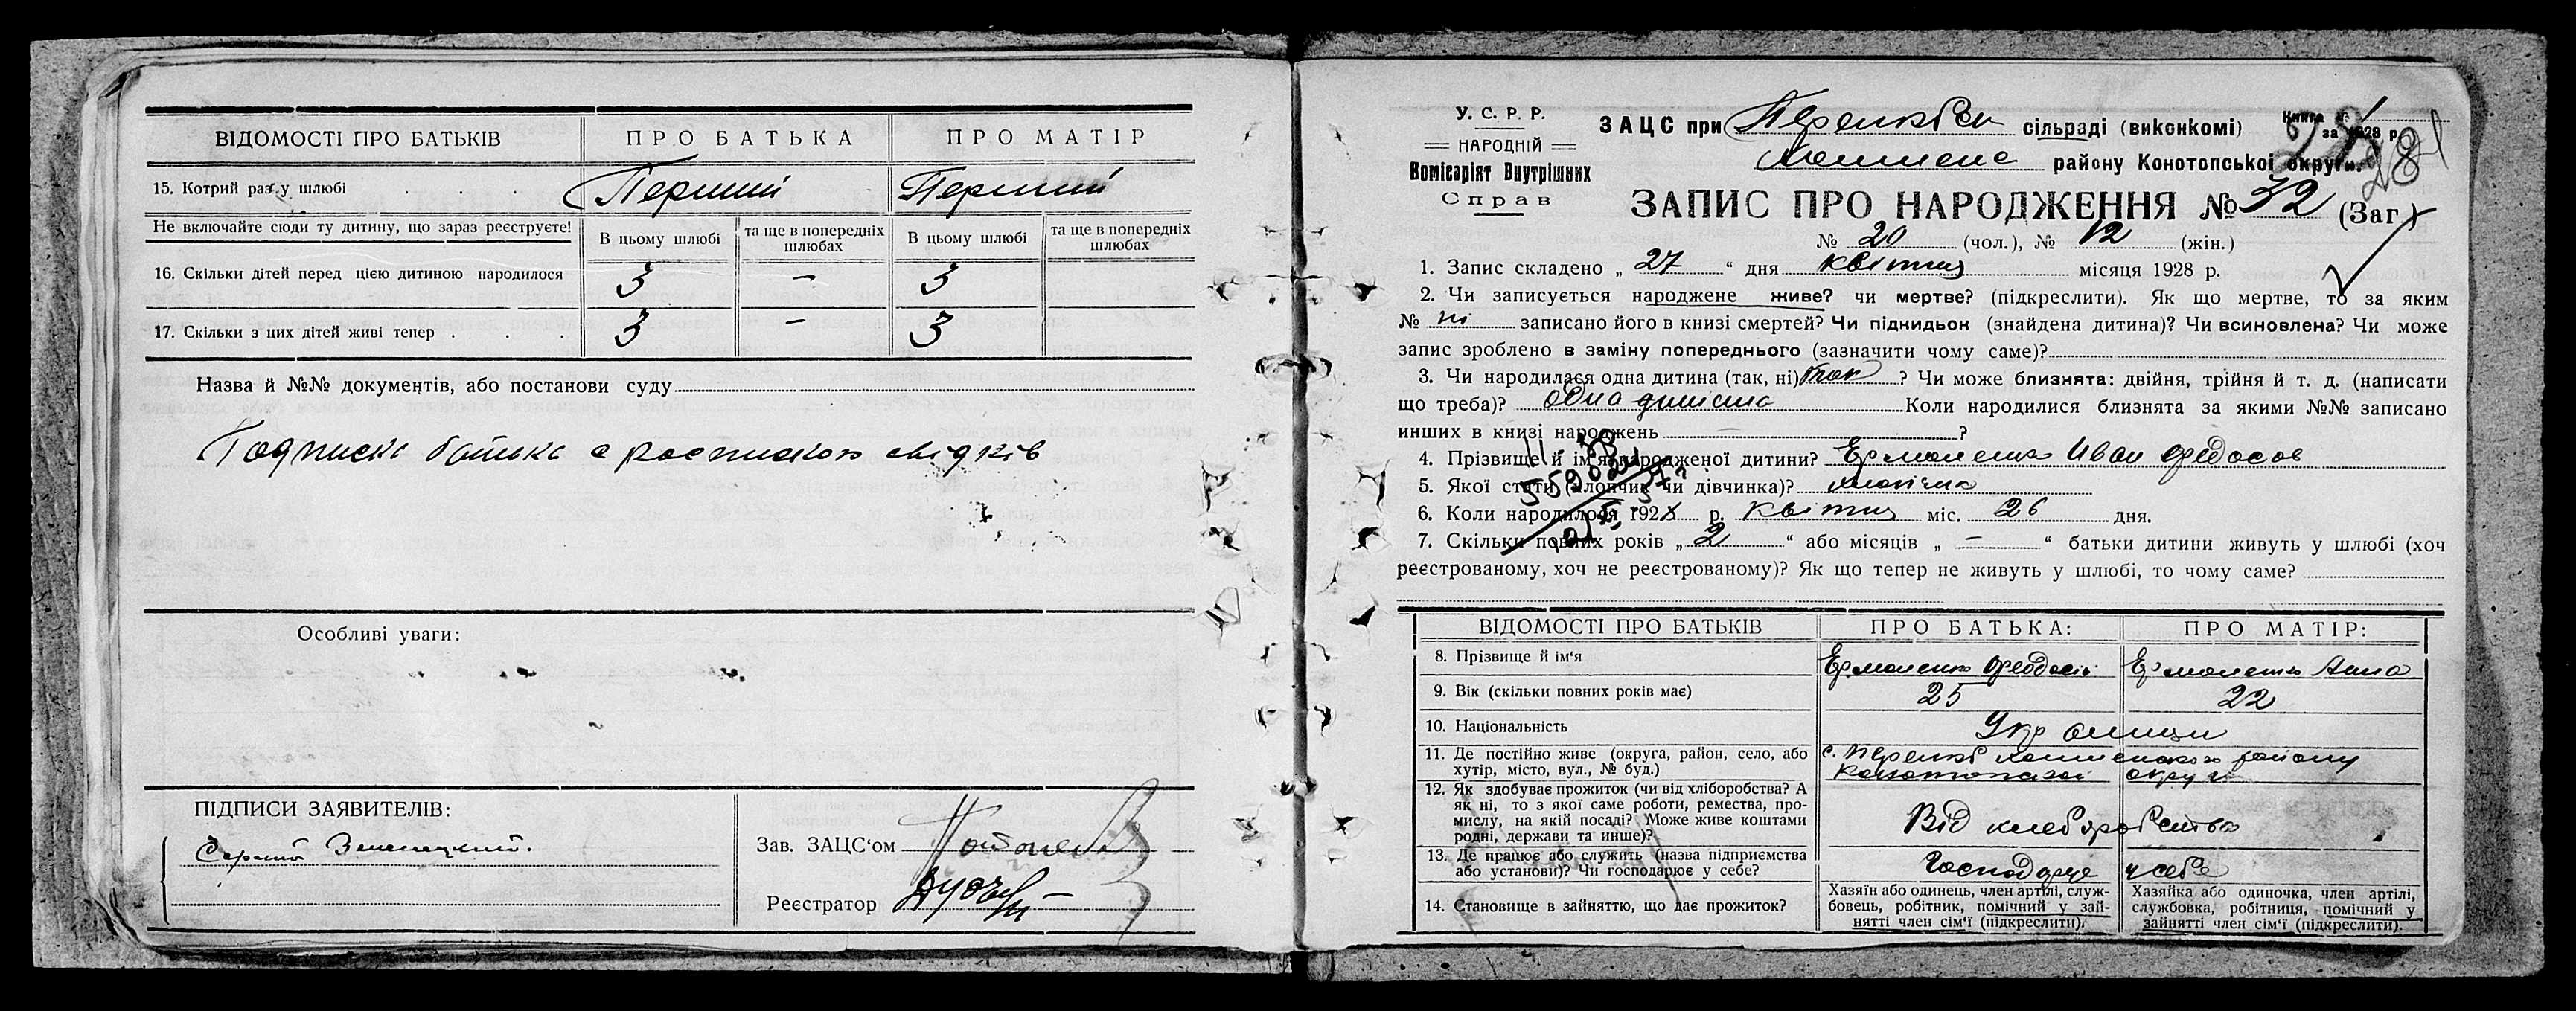 ВІДОМОСТІ ПРО БАТЬКІВ
ПРО БАТЬКА
ПРО МАТІР
15. Котрий раз у шлюбі . . . .
Перший
Перший
Не включайте сюди ту дитину, що зараз реєструєте!
В цьому шлюбі
та ще в попередніх шлюбах
В цьому шлюбі
та ще в попередніх шлюбах
16. Скільки дітей перед цією дитиною народилося
3
–
3
17. Скільки з цих дітей живі тепер . . .
3
–
3
Назва й №№ документів, або постанови суду
Подписка батька с роспискою свідків
Особливі уваги:
ПІДПИСИ ЗАЯВИТЕЛІВ:
Зав. ЗАЦС‘ом
Реєстратор
У. С. Р. Р.
НАРОДНІЙ
Комісаріят Внутрішних
Справ
ЗАЦС при сільраді (виконкомі)
Книга № 1
за 1928 р.
району Конотопської округи.
ЗАПИС ПРО НАРОДЖЕННЯ № 32 (Заг.)
№ 20 (чол.), № 12 (жін.)
1. Запис складено „ 27 “ дня квітня місяця 1928 р.
2. Чи записується народжене живе? чи мертве? (підкреслити). Як що мертве, то за яким
№ ні записано його в книзі смертей? Чи підкидьок (знайдена дитина)? Чи всиновлена? Чи може
запис зроблено в заміну попереднього (зазначити чому саме)?
3. Чи народилася одна дитина (так, ні) так ? Чи може близнята: двійня, трійня й т. д. (написати
що треба)? Одна дитина Коли народилися близнята за якими №№ записано
инших в книзі народжень – ?
4. Прізвище й ім‘я народженої дитини? Ермоленко Иван Федосов
5. Якої стати (хлопчик чи дівчинка)? хлопчик
6. Коли народилося 192 р. квітня міс. 26 дня.
7. Скільки повних років „ 2 “ або місяців „ – “ батьки дитини живуть у шлюбі (хоч
реєстрованому, хоч не реєстрованому)? Як що тепер не живуть у шлюбі, то чому саме?
ВІДОМОСТІ ПРО БАТЬКІВ
ПРО БАТЬКА:
ПРО МАТІР:
8. Прізвище й ім‘я
Ермоленко Феодосій
Ермоленко Анна
9. Вік (скільки повних років має)
25
22
10. Національність
Українці
11. Де постійно живе (округа, район, село, або
хутір, місто, вул., № буд.)
району
Конотопської округи
12. Як здобуває прожиток (чи від хліборобства? А
як ні, то з якої саме роботи, ремества, про-
мислу, на якій посаді? Може живе коштами
родні, держави та инше)?
Від хлеборобства
13. Де працює або служить (назва підприємства
або установи)? Чи господарює у себе?
Господарює у себе
14. Становище в зайняттю, що дає прожиток?
Хазяїн або одинець, член артілі, служ-
бовець, робітник, помічний у зай-
нятті член сім‘ї (підкреслити).
Хазяйка або одиночка, член артілі,
службовка, робітниця, помічний у
зайнятті член сім‘ї (підкреслити).